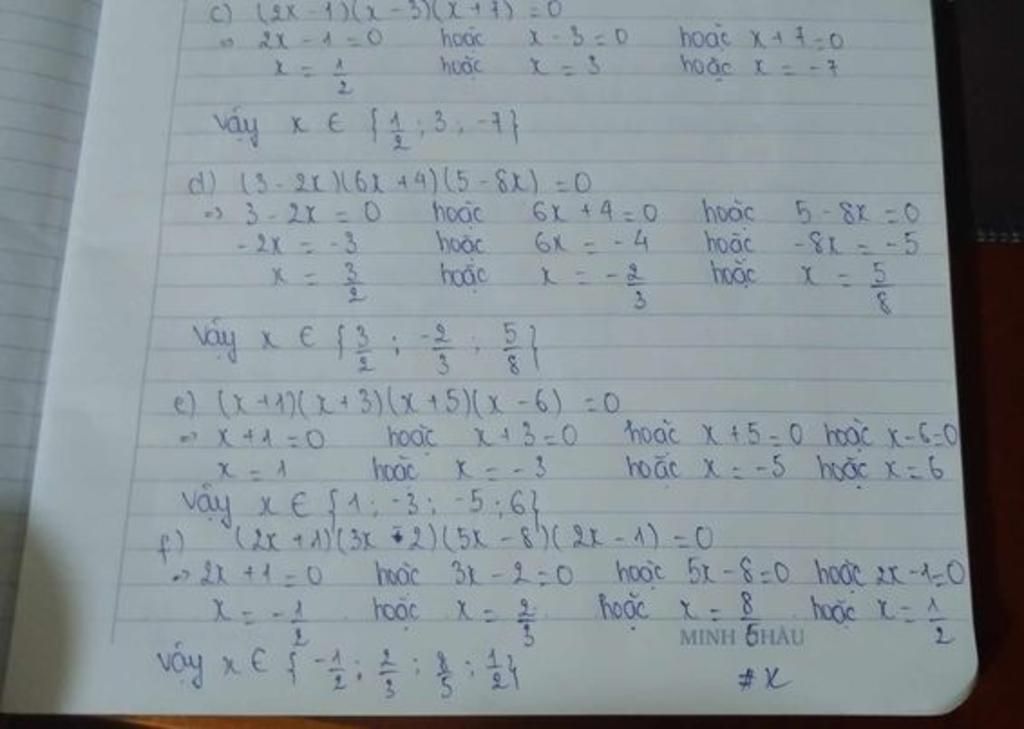 c) (2x - 1)(x - 3)(x + 7) = 0
=> 2x - 1 = 0 hoặc x - 3 = 0 hoặc x + 7 = 0
x = 1/2 hoặc x = 3 hoặc x = -7
Vậy x ∈ {1/2 ; 3 ; -7}
d) (3 - 2x)(6x + 4)(5 - 8x) = 0
=> 3 - 2x = 0 hoặc 6x + 4 = 0 hoặc 5 - 8x = 0
-2x = -3 hoặc 6x = -4 hoặc -8x = -5
x = 3/2 hoặc x = -2/3 hoặc x = 5/8
Vậy x ∈ {3/2 ; -2/3 ; 5/8}
e) (x + 1)(x + 3)(x + 5)(x - 6) = 0
=> x + 1 = 0 hoặc x + 3 = 0 hoặc x + 5 = 0 hoặc x - 6 = 0
x = 1 hoặc x = -3 hoặc x = -5 hoặc x = 6
Vậy x ∈ {1 ; -3 ; -5 ; 6}
f) (2x + 1)(3x - 2)(5x - 8)(2x - 1) = 0
=> 2x + 1 = 0 hoặc 3x - 2 = 0 hoặc 5x - 8 = 0 hoặc 2x - 1 = 0
x = -1/2 hoặc x = 2/3 hoặc x = 8/5 hoặc x = 1/2
MINH CHÂU
Vậy x ∈ {-1/2 ; 2/3 ; 8/5 ; 1/2}
#x